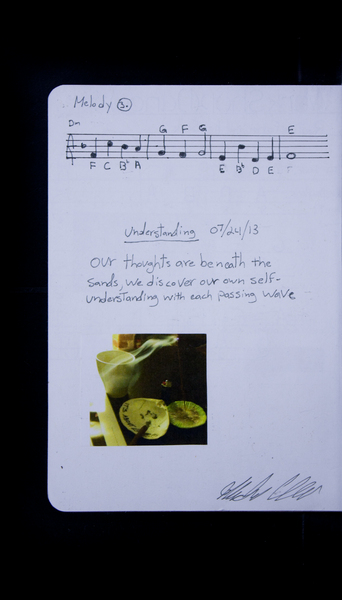 Melody 3.
Dm
G F G E
F C Bb A E Bb D E
Understanding 07/24/13
Our thoughts are beneath the
Sands, we discover our own self-
understanding with each passing wave